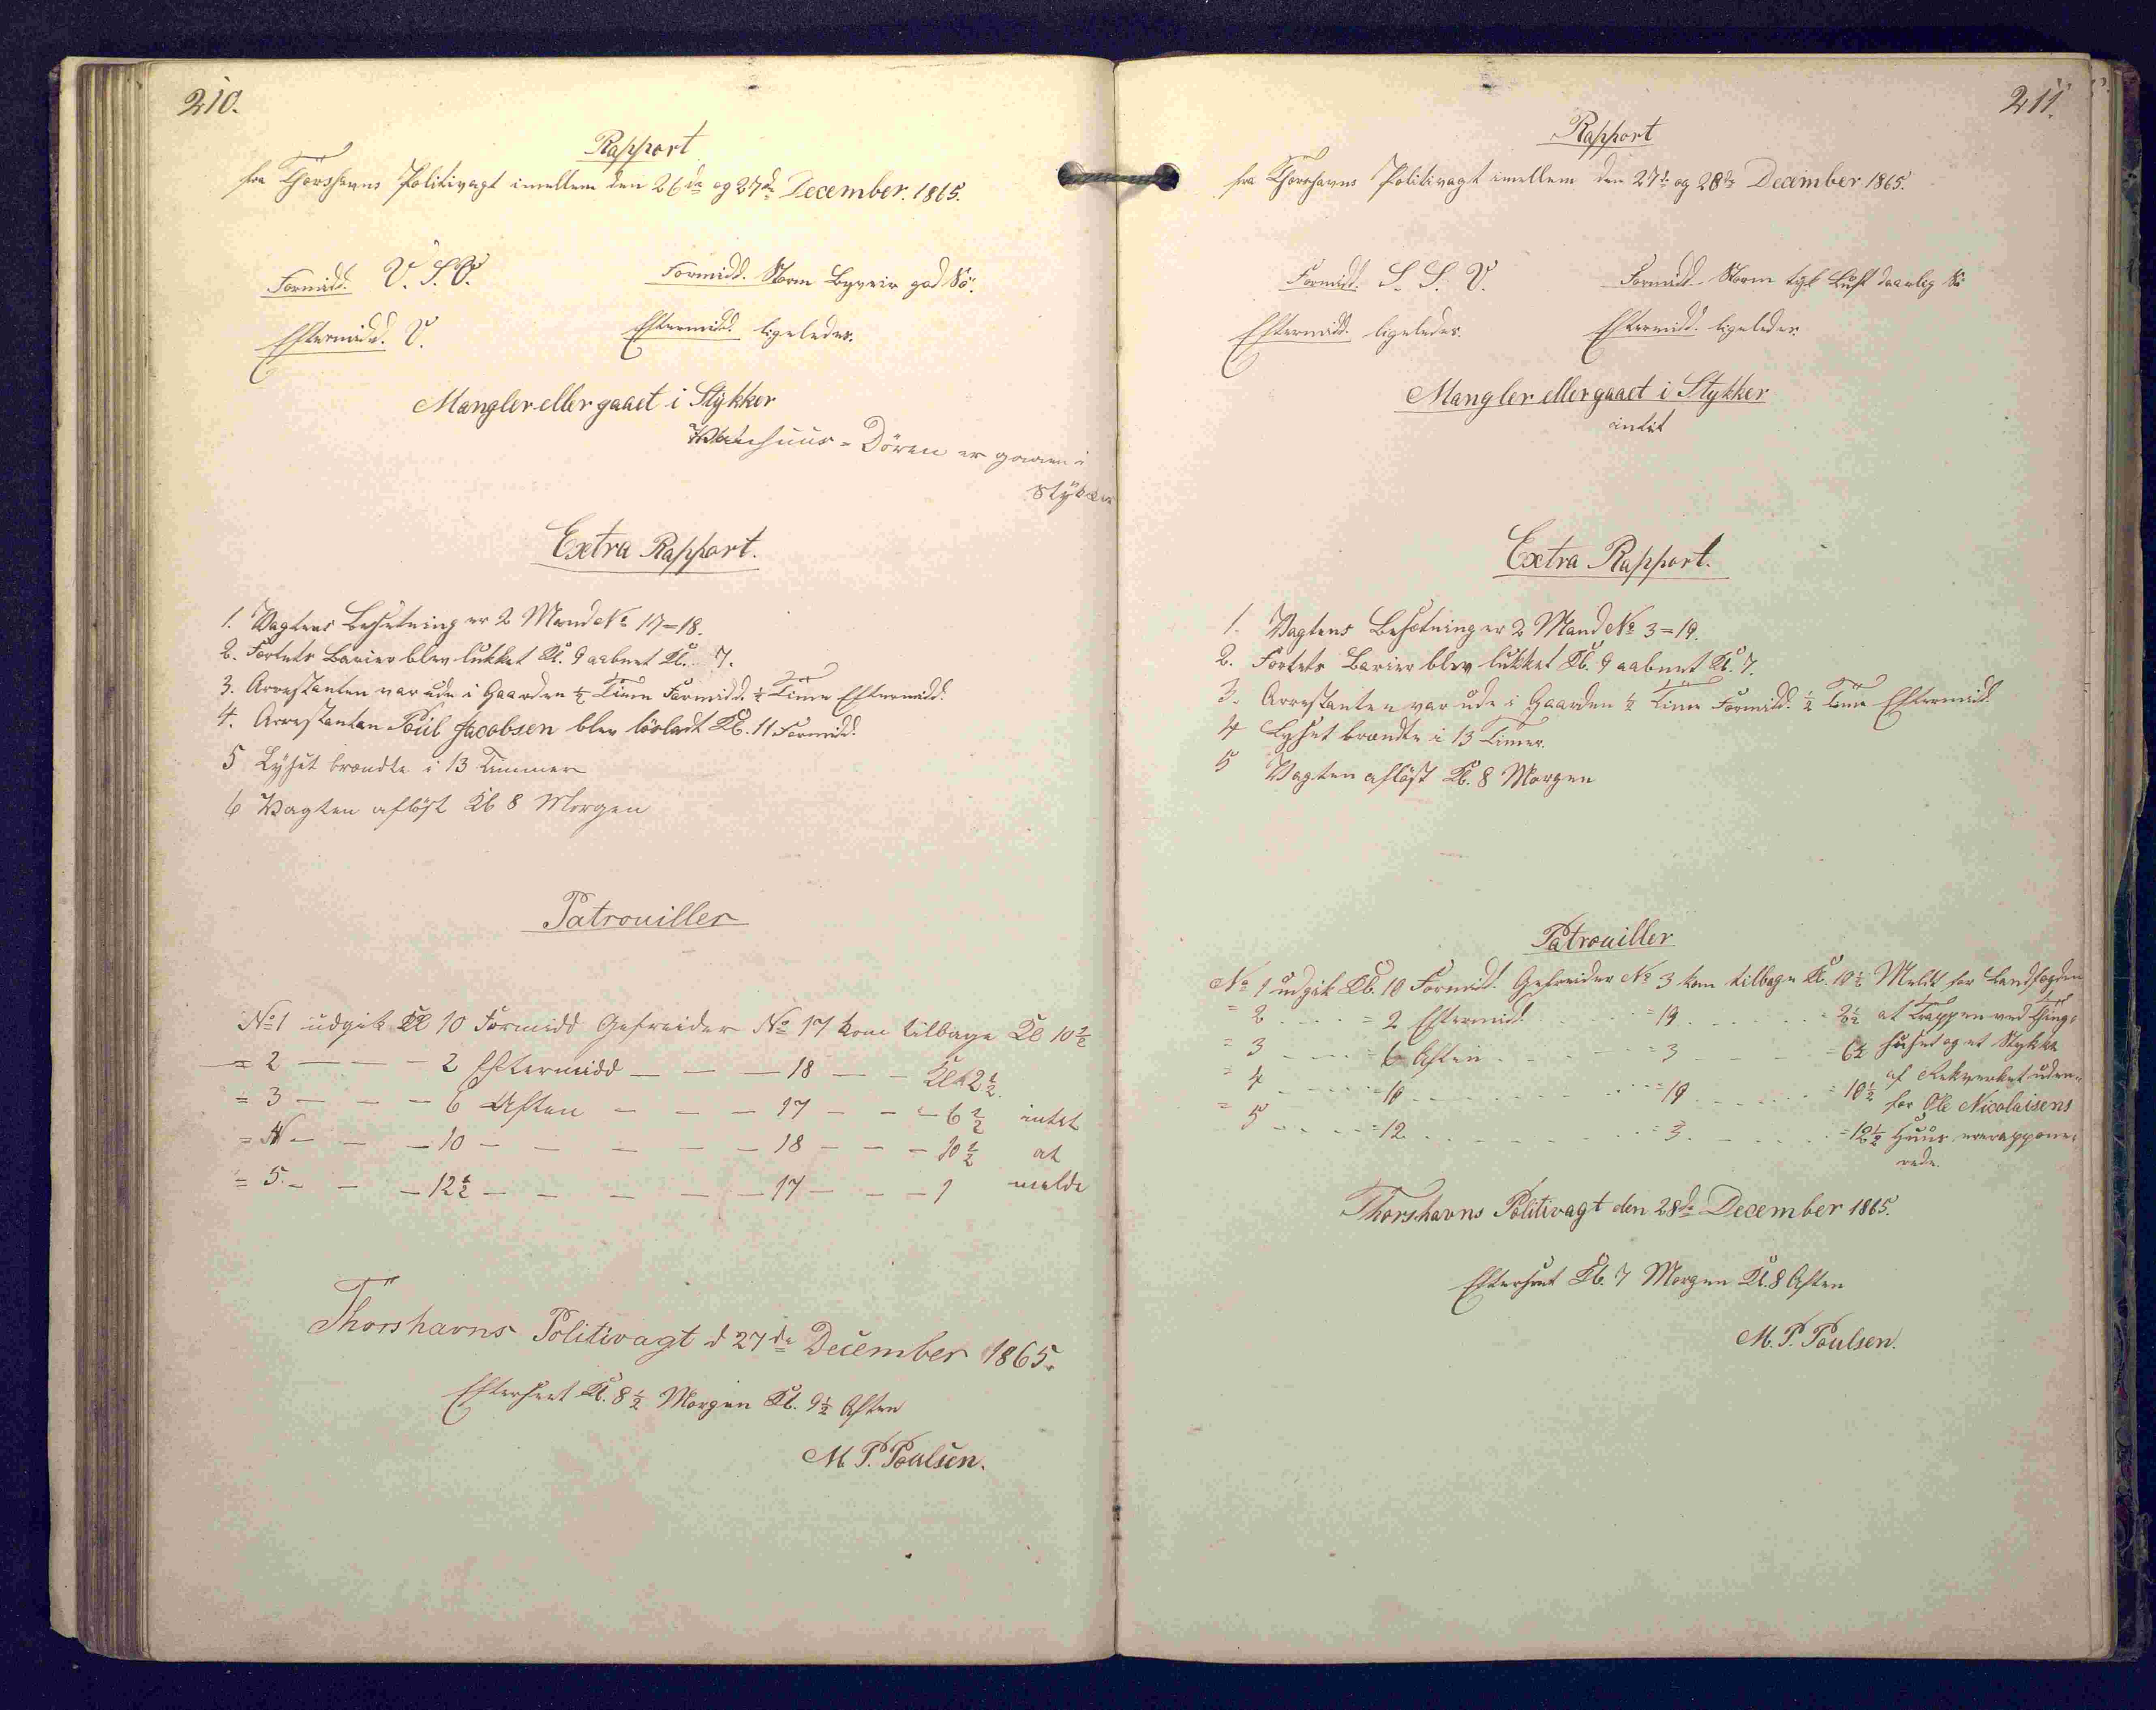 210.
Rapport
fra Thorshavns Politivagt imellem den 26de og 27de December. 1865.
Formidd. V. S. V. Formidd. Storm Byveir god Sö.
Eftermidd. V. Eftermidd. ligeledes.
Mangler eller gaaet i Stykker
Dören er gaaen i
Stykker
Extra Rapport.
1. Vagtens Besetning er 2 Mand No 17=18.
2. Fortets Barier blev lukket Kl. 9 aabnet Kl. 7.
3. Arrestanten var ude i Gaarden ½ Time Formidd. ½ Time Eftermidd.
4. Arrestanten Poul Jacobsen blev lösladt Kl. 11 Formidd.
5 Lyset brændte i 13 Timmer
6 Vagten aflöst Kl 8 Morgen
Patrouiller
No 1 udgik Kl 10 Formidd Gefreider No 17 kom tilbage Kl 10½
= 2 — — — 2 Eftermidd — — — 18 — — Kl 2½.
= 3 — — — 6 Aften — — — 17 — — — 6½ intet
= 4 — — — 10 — — — — — 18 — — — 10½ at
= 5. — — — 12½ — — — — — 17 — — — 1 melde
Thorshavns Politivagt d 27de December 1865.
Efterseet Kl. 8½ Morgen Kl. 9½ Aften
M. P. Poulsen.
211.
Rapport
fra Thorshavns Politivagt imellem den 27de og 28de December 1865.
Formidd. S. S. V. Formidd. Storm tyk Luft daarlig Sö
Eftermidd. ligeledes. Eftermidd. ligeledes.
Mangler eller gaaet i Stykker
intet
Extra Rapport.
1. Vagtens Besætning er 2 Mand No 3=19.
2. Fortets Barier blev lukket Kl. 9 aabnet Kl. 7.
3. Arrestanten var ude i Gaarden ½ Time Formidd. ½ Time Eftermidd.
4 Lyset brændte i 13 Timer.
5 Vagten aflöst Kl. 8 Morgen
Patrouiller
No 1 udgik Kl. 10 Formidd. Gefreider No 3 kom tilbage Kl. 10½ Meldt for Landfogden
= 2 . . . . = 2 Eftermidd. = 19 . . . . . = 2½ at Trappen ved Thing=
= 3 . . . . = 6 Aften . . . . . = 3 . . . . = 6½ huset og et Stykke
= 4 . . . . = 10 . . . . . = 19 . . . . . = 10½ af Rekverket uden=
= 5 . . . . = 12 . . . . . = 3 . . . . . = 12½ for Ole Nicolaisens
Huus
Thorshavns Politivagt den 28de December 1865.
Efterseet Kl. 7 Morgen Kl. 8 Aften
M. P. Poulsen.